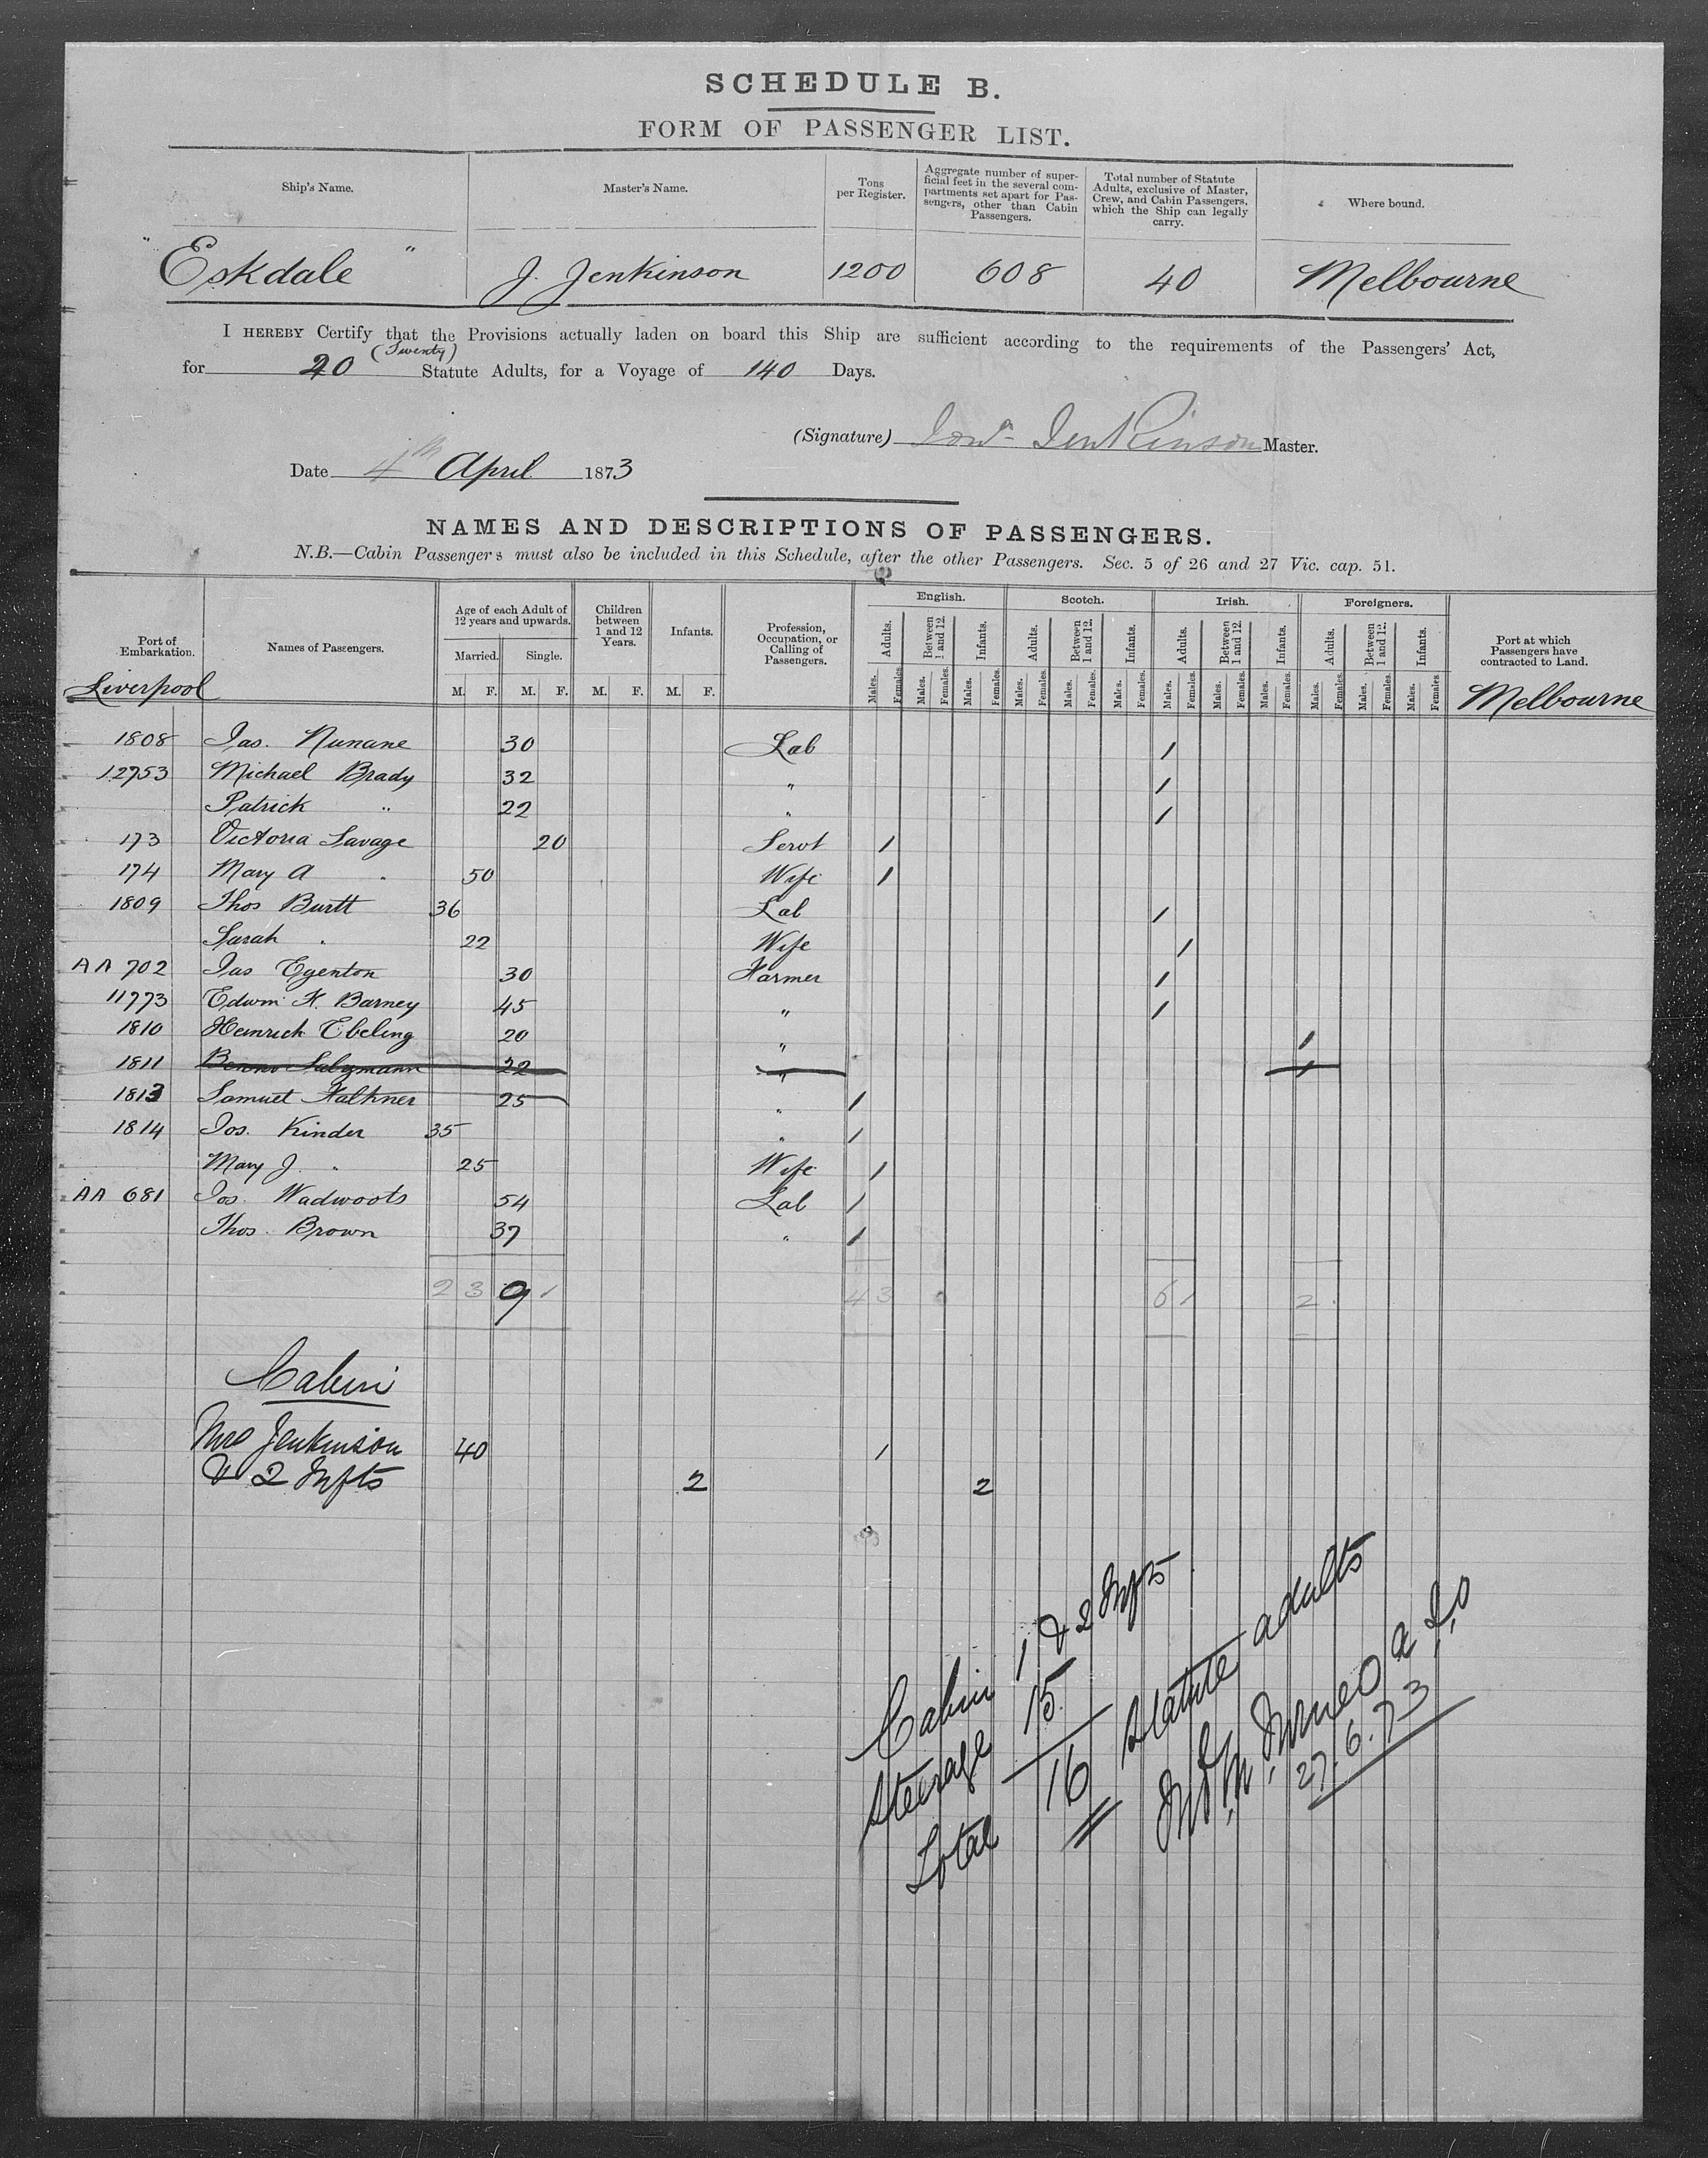 SCHEDULE B.
FORM OF PASSENGER LIST.
Ship's Name. Master's Name. Tons per Register. Aggregate number of superficial feet in the several compartments set apart for Passengers, other than Cabin Passengers. Total number of Statute Adults, exclusive of Master, Crew, and Cabin Passengers, which the Ship can legally carry. Where bound.
"Eskdale" J. Jenkinson 1200 608 40 Melbourne
I HEREBY Certify that the Provisions actually laden on board this Ship are sufficient according to the requirements of the Passengers' Act,
(Twenty)
for 20 Statute Adults, for a Voyage of 140 Days.
(Signature) Jenkinson Master.
Date 4th April 1873
NAMES AND DESCRIPTIONS OF PASSENGERS.
N.B.—Cabin Passengers must also be included in this Schedule, after the other Passengers. Sec. 5 of 26 and 27 Vic. cap. 51.
Port of Embarkation. Names of Passengers. Age of each Adult of 12 years and upwards. Children between 1 and 12 Years. Infants. Profession, Occupation, or Calling of Passengers. English. Scotch. Irish. Foreigners. Port at which Passengers have contracted to Land.
Married. Single.
Adults. Between 1 and 12. Infants. Adults. Between 1 and 12. Infants. Adults. Between 1 and 12. Infants. Adults. Between 1 and 12. Infants.
M. F. M. F. M. F. M. F. Males. Females. Males. Females. Males. Females. Males. Females. Males. Females. Males. Females. Males. Females. Males. Females. Males. Females. Males. Females. Males. Females. Males. Females.
Liverpool Melbourne
1808 Jas. Nunane 30 Lab 1
12753 Michael Brady 32 " 1
Patrick " 22 " 1
173 Victoria Savage 20 Servt 1
174 Mary A " 50 Wife 1
1809 Thos Burtt 36 Lab 1
Sarah " 22 Wife 1
AA 702 Jas Egenton 30 Farmer 1
11773 Edwin H. Barney 45 " 1
1810 Heinrich Ebeling 20 " 1
1811 Benno Salzmann 22 " 1
1813 Samuel Falkner 25 " 1
1814 Jos. Kinder 35 " 1
Mary J. " 25 Wife 1
AA 681 Jos. Wadwoots 54 Lab 1
Thos. Brown 37 " 1
2 3 9 1 4 3 6 1 2
Cabin
Mrs Jenkinson 40 1
& 2 Infts 2 2
Cabin 1 & 2 Infts
Steerage 15
Total 16 Statute adults
27.6.73